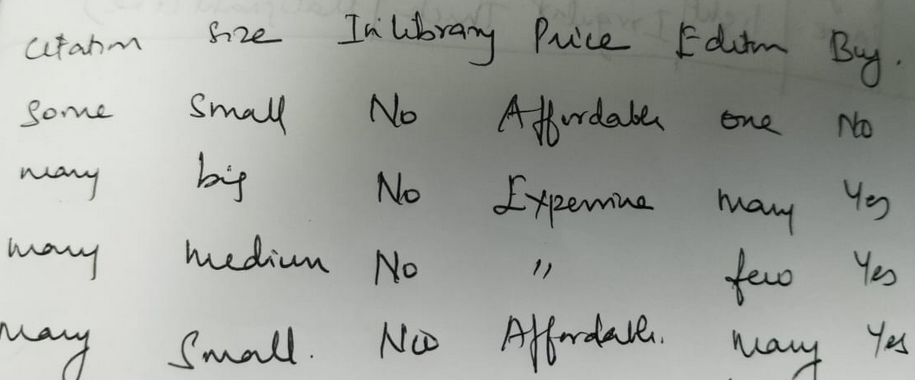 Citation Size In library Price Edition Buy.
Some Small No Affordable one No
many big No Expensive many Yes
many medium No " few Yes
Many Small. No Affordable. many Yes